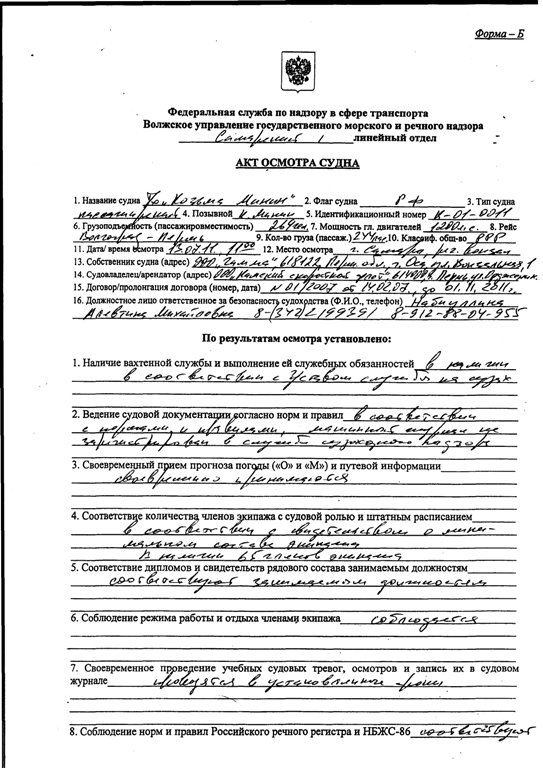 Форма – Б
Федеральная служба по надзору в сфере транспорта
Волжское управление государственного морского и речного надзора
Самарский 1 линейный отдел
АКТ ОСМОТРА СУДНА
1. Название судна "Козьма Минин" 2. Флаг судна РФ 3. Тип судна
пассажирский 4. Позывной К. Минин 5. Идентификационный номер К-01-0011
6. Грузоподъемность (пассажировместимость) 7. Мощность гл. двигателей 1200 л.с. 8. Рейс
Волгоград - Пермь 9. Кол-во груза (пассаж.) 10. Классиф. общ-во РРР
11. Дата/ время осмотра 13.07.11 11 00 12. Место осмотра г. Самара, реч. Вокзал
13. Собственник судна (адрес) ООО 618122, Перм. обл., г. Оса, ул. Вокзальная, 1
14. Судовладелец/арендатор (адрес) ООО "Камский скоростной флот"
15. Договор/пролонгация договора (номер, дата) N 01/2007 от 14.02.07, до 01.11.2011г.
16. Должностное лицо ответственное за безопасность судоходства (Ф.И.О., телефон) Набиуллина
Алевтина Михайловна 8-(342)2199391 8-912-88-04-955
По результатам осмотра установлено:
1. Наличие вахтенной службы и выполнение ей служебных обязанностей в наличии
в соответствии с Уставом службы на судах
2. Ведение судовой документации согласно норм и правил в соответствии
с нормами и правилами, машинный журнал не
зарегистрирован в службе судоходного надзора
3. Своевременный прием прогноза погоды («О» и «М») и путевой информации
своевременно принимаются
4. Соответствие количества членов экипажа с судовой ролью и штатным расписанием
в соответствии с свидетельством о мини-
мальном составе экипажа
В наличии 65 членов экипажа
5. Соответствие дипломов и свидетельств рядового состава занимаемым должностям
соответствуют занимаемым должностям
6. Соблюдение режима работы и отдыха членами экипажа соблюдается
7. Своевременное проведение учебных судовых тревог, осмотров и запись их в судовом
журнале проводятся в установленные сроки
8. Соблюдение норм и правил Российского речного регистра и НБЖС-86 соответствует